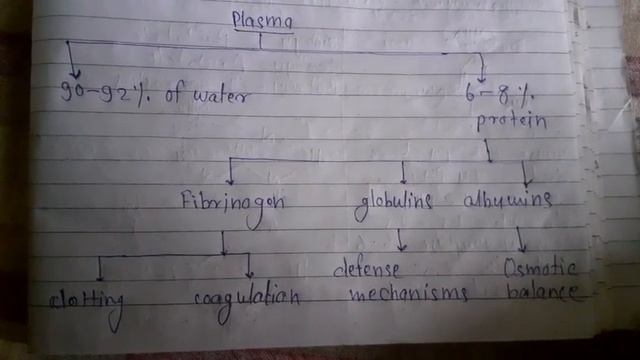 Plasma
90-92% of water
6-8%
protein
Fibrinogen globulins albumins
clotting coagulation defense mechanisms Osmotic balance